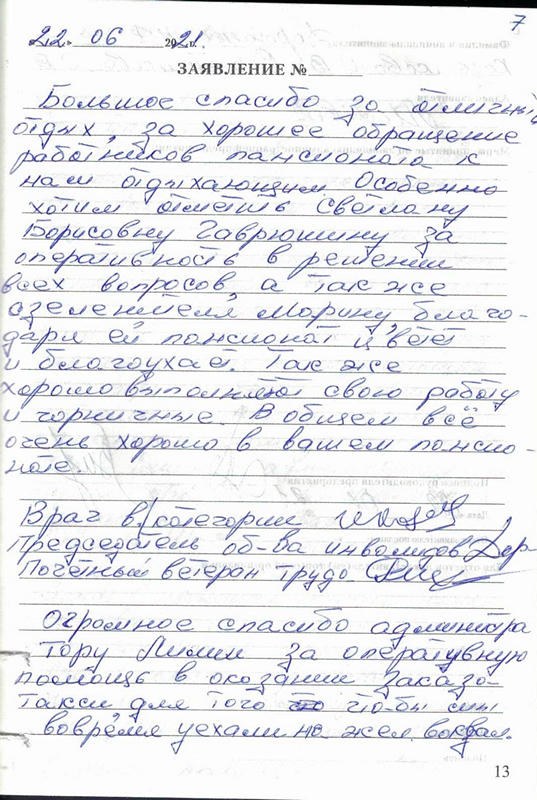 7
22. 06 2021.
ЗАЯВЛЕНИЕ №
Большое спасибо за отличный
отдых, за хорошее обращение
работников пансионата к
нам отдыхающим. Особенно
хотим отметить Светлану
Борисовну Гаврюшину за
оперативность в решении
всех вопросов, а так же
озеленителя Марину, благо-
даря ей пансионат цветёт
и благоухает. Так же
хорошо выполняют свою работу
и горничные. В общем всё
очень хорошо в вашем пансио-
нате.
Врач в/категории
Председатель об-ва инвалидов
Почетный ветеран труда
Огромное спасибо администра
тору Лилии за оперативную
помощь в оказании заказа
такси для того что-бы мы
вовремя уехали на жел. вокзал.
13